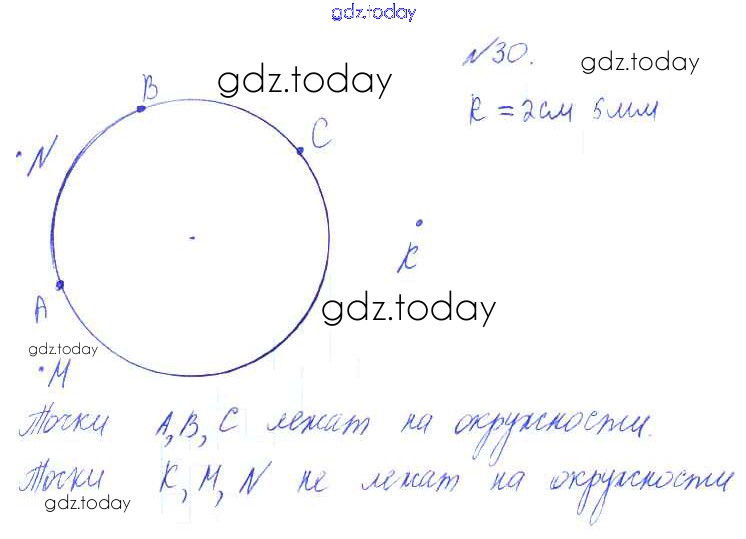 gdz.today
N30.
gdz.today
gdz.today
B
R = 2см 5мм
C
N
K
gdz.today
A
gdz.today
M
Точки A, B, C лежат на окружности.
Точки K, M, N не лежат на окружности
gdz.today